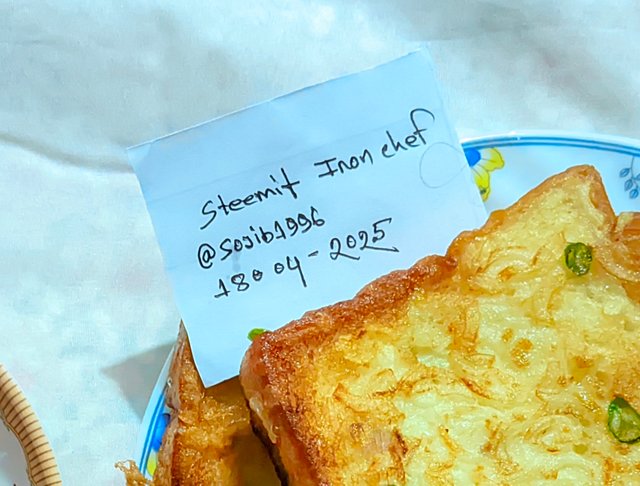 Steemit Inon chef
@sojib1996
18004-2025